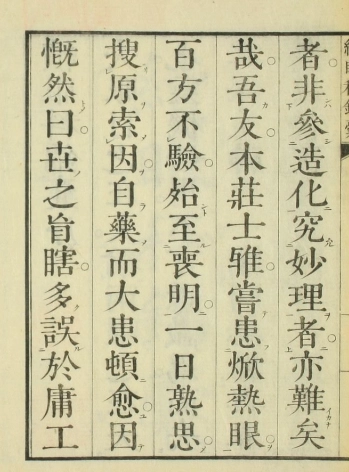 者非參造化究妙理者亦難矣
哉吾友本莊士雅嘗患焮熱眼
百方不驗始至喪明一日熟思
搜原索因自藥而大患頓愈因
慨然曰世之旨瞎多誤於庸工